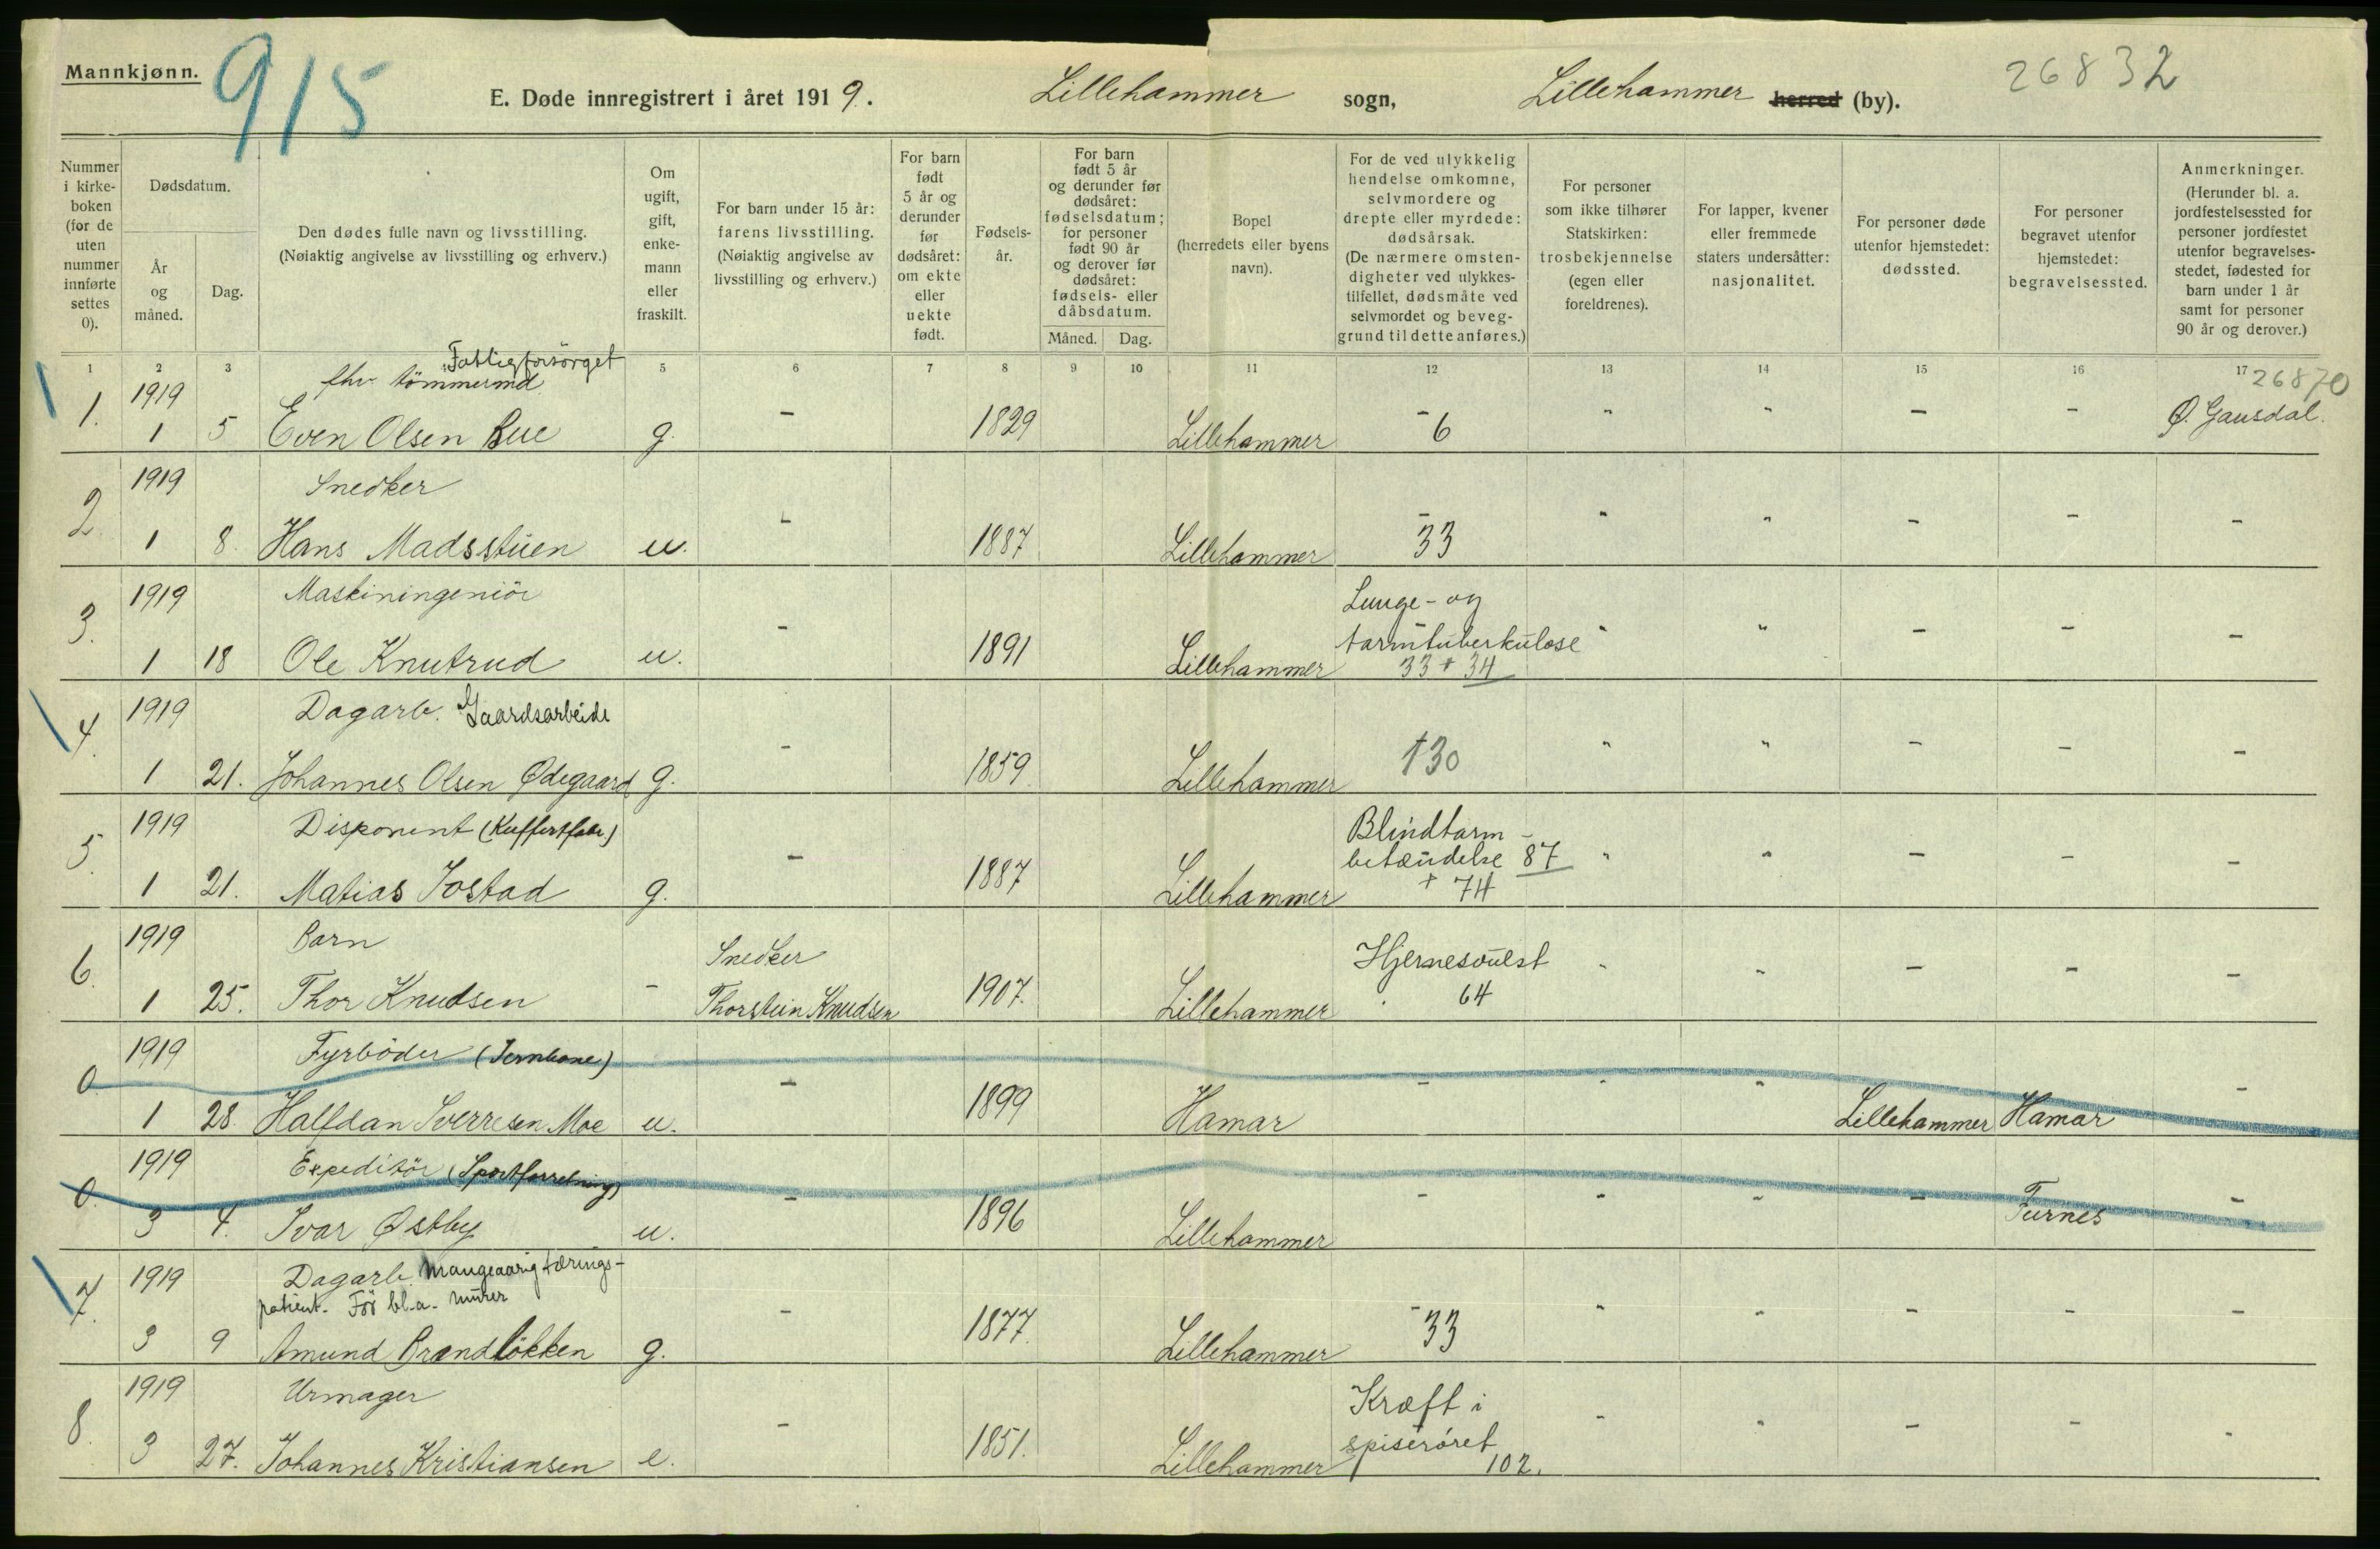 Mannkjønn.
915
E. Døde innregistrert i året 1919. Lillehammer sogn, Lillehammer herred (by).
26832
Nummer i kirke-boken (for de uten nummer innførte settes 0).
Dødsdatum.
År og måned.
Dag.
Den dødes fulle navn og livsstilling.
(Nøiaktig angivelse av livsstilling og erhverv.)
Om ugift, gift, enke-mann eller fraskilt.
For barn under 15 år: farens livsstilling. (Nøiaktig angivelse av livsstilling og erhverv.)
For barn født 5 år og derunder før dødsåret: om ekte eller uekte født.
Fødsels-år.
For barn født 5 år og derunder før dødsåret: fødselsdatum; for personer født 90 år og derover før dødsåret: fødsels- eller dåbsdatum.
Måned. Dag.
Bopel (herredets eller byens navn).
For de ved ulykkelig hendelse omkomne, selvmordere og drepte eller myrdede: dødsårsak. (De nærmere omsten-digheter ved ulykkes-tilfellet, dødsmåte ved selvmordet og beveg-grund til dette anføres.)
For personer som ikke tilhører Statskirken: trosbekjennelse (egen eller foreldrenes).
For lapper, kvener eller fremmede staters undersåtter: nasjonalitet.
For personer døde utenfor hjemstedet: dødssted.
For personer begravet utenfor hjemstedet: begravelsessted.
Anmerkninger. (Herunder bl. a. jordfestelsessted for personer jordfestet utenfor begravelses-stedet, fødested for barn under 1 år samt for personer 90 år og derover.)
1 2 3 5 6 7 8 9 10 11 12 13 14 15 16 17
26870
1919 fhv. tömmermd. Fattigforsörget
1. 1 5 Even Olsen Bue g. - 1829 Lillehammer - 6 " " - - Ø. Gausdal.
1919 Snedker
2 1 8. Hans Madsstuen u. - 1887 Lillehammer - 33 " " - - -
1919 Maskiningeniör Lunge- og
3. 1 18 Ole Knutrud u. - 1891 Lillehammer tarmtuberkulose " " - - -
33 + 34
1919 Dagarb. Gaardsarbeide
4. 1 21. Johannes Olsen Ødegaard g. - 1859 Lillehammer 130 " " - - -
1919 Disponent (Kuffertfabr) Blindtarm-
5. 1 21. Matias Jostad g. - 1887 Lillehammer betændelse 87 " " - - -
+ 74
1919 Barn Snedker Hjernesvulst
6. 1 25. Thor Knudsen - Thorstein Knudsen 1907. Lillehammer 64 " " - - -
1919 Fyrböder (Jernbane)
0 1 28. Halfdan Sverresen Moe u. - 1899 Hamar - " " Lillehammer Hamar -
1919 Expeditör (Sportforretning)
0. 3 4. Ivar Østby u. - 1896 Lillehammer - " " - Furnes -
1919 Dagarb. Mangeaarig tærings-
patient. För bl.a. murer
7. 3 9 Amund Brandlökken g. - 1877. Lillehammer - 33 " " - - -
1919 Urmager Kræft i
8. 3 27. Johannes Kristiansen e. - 1851. Lillehammer spiseröret - " - - -
102.